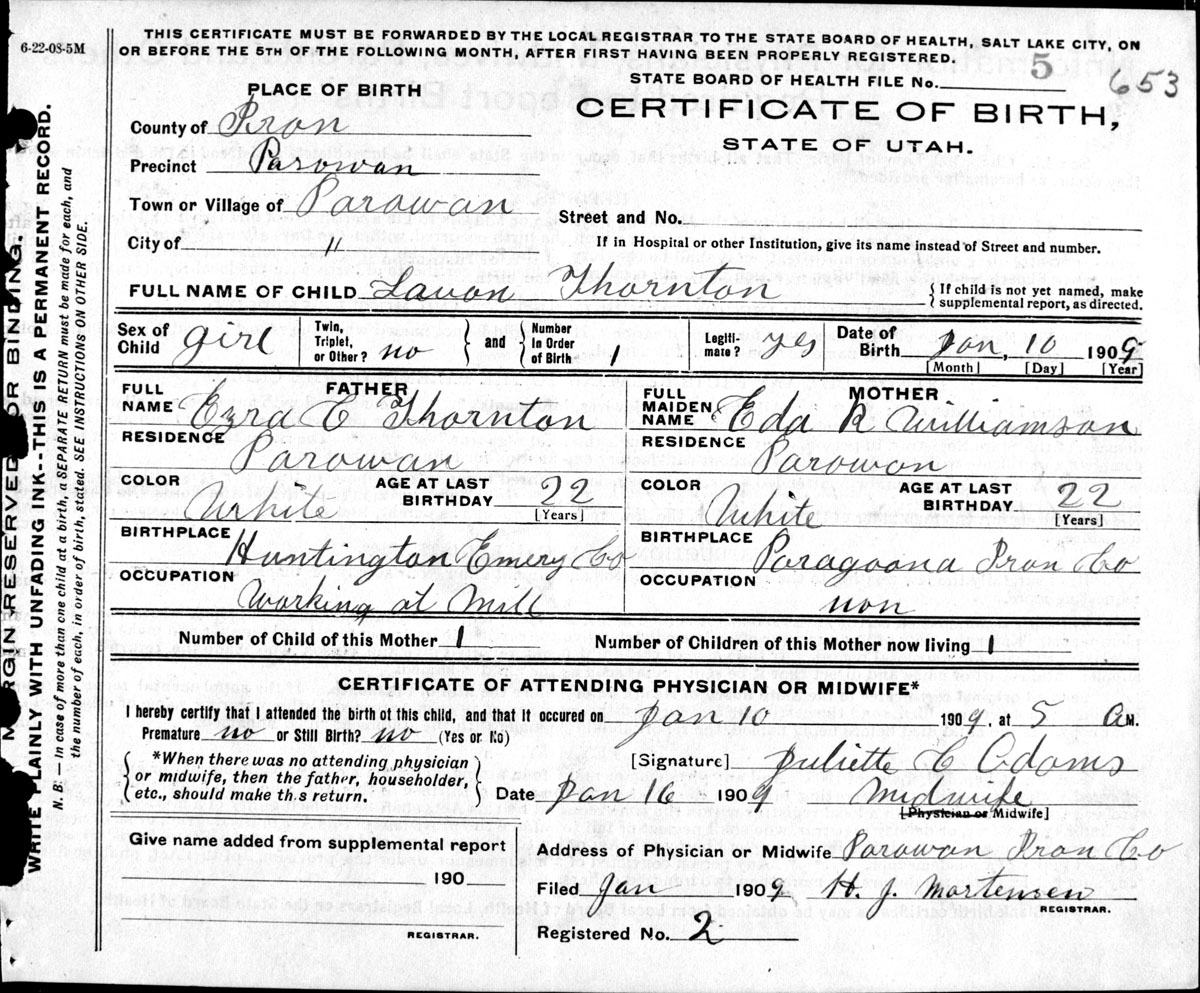 6-22-08-5M
THIS CERTIFICATE MUST BE FORWARDED BY THE LOCAL REGISTRAR TO THE STATE BOARD OF HEALTH, SALT LAKE CITY, ON
OR BEFORE THE 5TH OF THE FOLLOWING MONTH, AFTER FIRST HAVING BEEN PROPERLY REGISTERED.
STATE BOARD OF HEALTH FILE No. 5 653
PLACE OF BIRTH
CERTIFICATE OF BIRTH,
STATE OF UTAH.
County of Iron
Precinct Parowan
Town or Village of Parowan
Street and No.
City of "
If in Hospital or other Institution, give its name instead of Street and number.
FULL NAME OF CHILD Lavon Thornton
{ If child is not yet named, make
supplemental report, as directed.
Sex of Child girl
Twin, Triplet, or Other? no } and { Number in Order of Birth 1
Legiti-mate? yes
Date of Birth Jan, 10 1909
[Month] [Day] [Year]
FATHER
FULL NAME Ezra C Thornton
RESIDENCE Parowan
COLOR White AGE AT LAST BIRTHDAY 22
[Years]
BIRTHPLACE Huntington Emery Co
OCCUPATION Working at Mill
MOTHER
FULL MAIDEN NAME Eda R Williamson
RESIDENCE Parowan
COLOR White AGE AT LAST BIRTHDAY 22
[Years]
BIRTHPLACE Paragoona Iron Co
OCCUPATION non
Number of Child of this Mother 1 Number of Children of this Mother now living 1
CERTIFICATE OF ATTENDING PHYSICIAN OR MIDWIFE*
I hereby certify that I attended the birth of this child, and that it occured on Jan 10 1909, at 5 A M.
Premature no or Still Birth? no (Yes or No)
{ *When there was no attending physician
or midwife, then the father, householder,
etc., should make this return. }
[Signature] Juliette C Adams
Date Jan 16 1909 Midwife
[Physician or Midwife]
Give name added from supplemental report
190
REGISTRAR.
Address of Physician or Midwife Parowan Iron Co
Filed Jan 1909 H. J. Mortensen
REGISTRAR.
Registered No. 2
MARGIN RESERVED FOR BINDING.
WRITE PLAINLY WITH UNFADING INK--THIS IS A PERMANENT RECORD.
N. B. — In case of more than one child at a birth, a SEPARATE RETURN must be made for each, and
the number of each, in order of birth, stated. SEE INSTRUCTIONS ON OTHER SIDE.